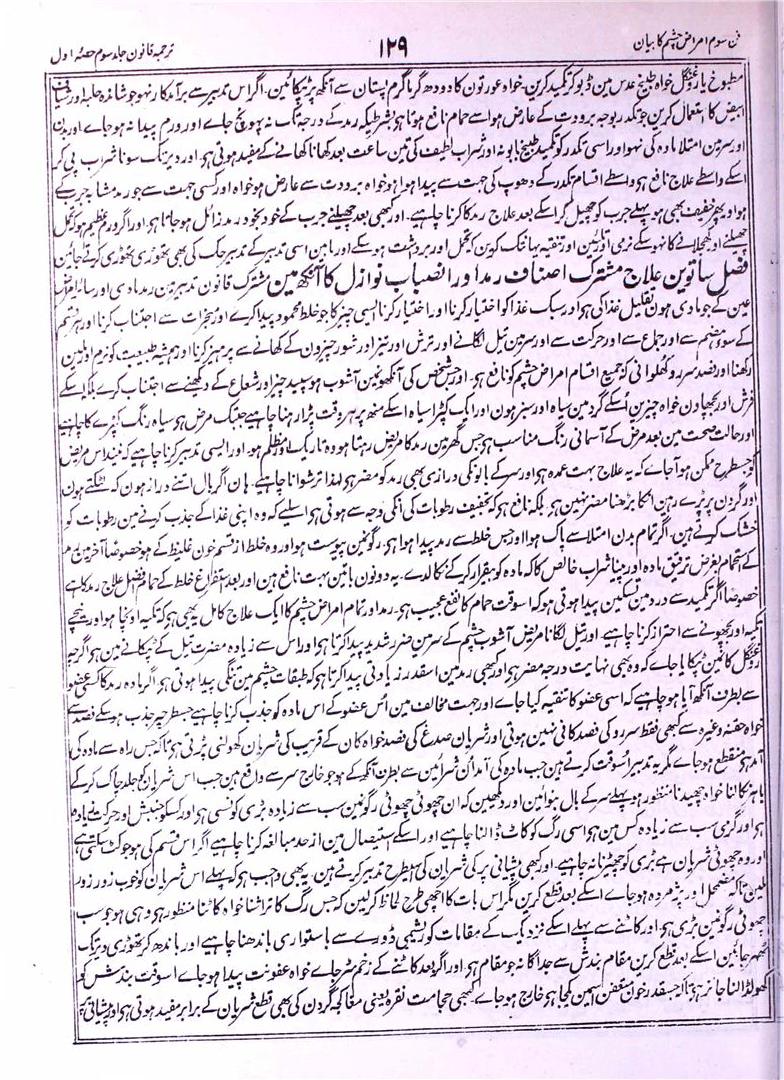 فن سوم امراض چشم کا بیان
۱۲۹
ترجمہ قانون جلد سوم حصہ اول
مطبوخ یا روغن گل خواہ طبیخ عدس مین ڈبو کر تکمید کرین۔ خواہ عورتون کا دودھ گرما گرم پستان سے آنکھ پر ٹپکائین۔ اگر اس تدبیر سے برآمد کار نہو جوشاندہ حلبہ اور شیاف
ابیض کا استعمال کرین جو تکدر بوجہ برودت کے عارض ہو اسے حمام نافع ہوتا ہی بشرطیکہ رمد کے درجہ تک نہ پہونچ جاے اور ورم پیدا نہ ہو جاے اور بدن
اور سر مین امتلا مادہ کی نہو اور اسی تکدر کو تکمید طبیخ بابونہ اور شراب لطیف کی تین ساعت بعد کھانا کھانے کے مفید ہوتی ہی اور دیر تک سونا شراب پی کر
اسکے واسطے علاج نافع ہی واسطے اقسام تکدر کے دھوپ کی جہت سے پیدا ہوا ہو خواہ برودت سے عارض ہو خواہ اور کسی جہت سے جو رمد مشابہ جرب کے
ہو اور پھر خفیف بھی ہو پہلے جرب کو چھیل کر اسکے بعد علاج رمد کا کرنا چاہیے۔ اور کبھی بعد چھیلنے جرب کے خود بخود رمد زائل ہو جاتا ہی اور اگر ورم عظیم ہو کہ تحمل
چھیلنے اور کھجلانے کا نہو سکے نرمی اور تنقیہ یہانتک کرین کہ تحمل اور برداشت ہو سکے اور مابین اسی تدبیر کے تدبیر حک کی بھی تھوڑی تھوڑی کرتے جائین
فصل ساتوین علاج مشترک اصناف رمد اور انصباب نوازل کا آنکھ مین مشترک قانون تدبیر مین رمد مادی اور سائر امراض
عین کے جو مادی ہون تقلیل غذا کی ہی اور سبک غذا کو اختیار کرنا اور اختیار کرنا ایسی چیز کا جو خلط محمود پیدا کرے اور مبخرات سے اجتناب کرنا اور ہر قسم
کے سوء ہضم سے اور جماع سے اور حرکت سے اور سر مین تیل لگانے اور ترش اور تیز اور شور چیزون کے کھانے سے پرہیز کرنا اور ہمیشہ طبیعت کو نرم
رکھنا اور فصد سررو کھلوانی کہ جمیع اقسام امراض چشم کو نافع ہی۔ اور جس شخص کی آنکھ مین آشوب ہو سپید چیز اور شعاع کے دیکھنے سے اجتناب کرے بلکہ اسکے
فرش اور بچھاون خواہ چیزین اسکے گرد مین سیاہ اور سبز ہون اور ایک کپڑا سیاہ اسکے منھ پر ہر وقت پڑا رہنا چاہیے جبتک مرض ہو سیاہ رنگ کپڑے کا چاہیے
اور حالت صحت مین بعد مرض کے آسمانی رنگ مناسب ہی جس گھر مین رمد کا مریض رہتا ہو وہ تاریک اور مظلم ہو اور ایسی تدبیر کرنا چاہیے کہ نیند اس مریض
کو جسطرح ممکن ہو آجاے کہ یہ علاج بہت عمدہ ہی اور سر کے بالونکی درازی بھی رمد کو مضر ہی لہذا ترشوانا چاہیے۔ ہان اگر بال اتنے دراز ہون کہ لٹکتے ہون
اور گردن پر پڑے رہین انکا بڑھنا مضر نہین ہی بلکہ نافع ہی کہ تخفیف رطوبات کی انکی وجہ سے ہوتی ہی اسلیے کہ وہ اپنی غذا کے جذب کرنے مین رطوبات کو
خشک کرتے ہین۔ اگر تمام بدن امتلا سے پاک ہو اور جس خلط سے رمد پیدا ہوا ہی رگونمین پیوست ہو اور وہ خلط از قسم خون غلیظ کے ہو خصوصاً آخر مین رمد
کے استحمام بغرض ترقیق مادہ اور پینا شراب خالص کا کہ مادہ کو بیقرار کر کے نکالدے۔ یہ دونون باتین بہت نافع ہین اور بعد استفراغ خلط کے حمام افضل علاج رمد کا ہے
خصوصاً اگر تکمید سے درد مین تسکین پیدا ہوتی ہو کہ اسوقت حمام کا نفع عجیب ہی۔ رمد اور تمام امراض چشم کا ایک علاج کامل یہ بھی ہی کہ تکیہ اونچا ہو اور نیچے
تکیہ اور بچھونے سے احتراز کرنا چاہیے۔ اور تیل لگانا مریض آشوب چشم کے سر مین ضرر شدید پیدا کرتا ہی اور اس سے زیادہ مضرت تیل کے ٹپکانے مین ہی اگرچہ
روغن گل کانمین ٹپکایا جاے کہ وہ بھی نہایت درجہ مضر ہی اور کبھی رمد مین اسقدر زیادتی پیدا کرتا ہی کہ طبقات چشم مین تنگی پیدا ہوتی ہی اگر مادہ رمد کا کسی عضو
سے بطرف آنکھ آیا ہو چاہیے کہ اسی عضو کا تنقیہ کیا جاے اور جہت مخالف مین اس عضو کے اس مادہ کو جذب کرنا چاہیے جسطرح پر جذب ہو سکے فصد سے
خواہ حقنہ وغیرہ سے کبھی فقط سررو کی فصد کافی نہین ہوتی اور شریان صدغ کی فصد خواہ کان کے قریب کی شریان کھولنی پڑتی ہی تاکہ جس راہ سے مادہ کی
آمد ہی منقطع ہو جاے مگر یہ تدبیر اسوقت کرتے ہین جب مادہ کی آمد ان شرائین سے بطرف آنکھ کے ہو جو خارج سر سے واقع ہین جب اس شریان کو جلد چاک کر کے
باہر نکالنا خواہ چھیدنا منظور ہو پہلے سر کے بال بنوائین اور دیکھین کہ ان چھوٹی چھوٹی رگونمین سب سے زیادہ بڑی کونسی ہی اور کسکو جنبش اور حرکت زیادہ
ہی اور گرمی سب سے زیادہ کس مین ہی اسی رگ کو کاٹ ڈالنا چاہیے اور اسکے استیصال مین از حد مبالغہ کرنا چاہیے اگر اس قسم کی ہو جو کٹ سکتی ہے
اور وہ چھوٹی شریان ہے بڑی کو چھیڑنا نہ چاہیے۔ اور کبھی پیشانی پر کی شریان کی اسیطرح تدبیر کرتے ہین۔ یہ بھی واجب ہی کہ پہلے اس شریان کو خوب زور زور
ملین تاکہ مضمحل اور پژمردہ ہو جاے اسکے بعد قطع کرین مگر اس بات کا اچھی طرح لحاظ کر لین کہ جس رگ کا تراشنا خواہ کاٹنا منظور ہی وہی ہو جو سب
چھوٹی رگونمین بڑی ہی اور کاٹنے سے پہلے اسکے نزدیک کے مقامات کو ریشمی ڈورے سے باستواری باندھنا چاہیے اور باندھ کر تھوڑی دیر تک
ٹھہر جائین اسکے بعد قطع کرین مقام بندش سے جداگانہ جو مقام ہی اور اگر بعد کاٹنے کے زخم سڑ جاے خواہ عفونت پیدا ہو جاے اسوقت بندش کو
کھولڈالنا جائز ہی تاکہ جسقدر خون متعفن اسمین یکجا ہی خارج ہو جاے۔ کبھی حجامت نقرہ یعنی مغاکچہ گردن کی بھی قطع شریان کے برابر مفید ہوتی ہی اور پیشانی پر